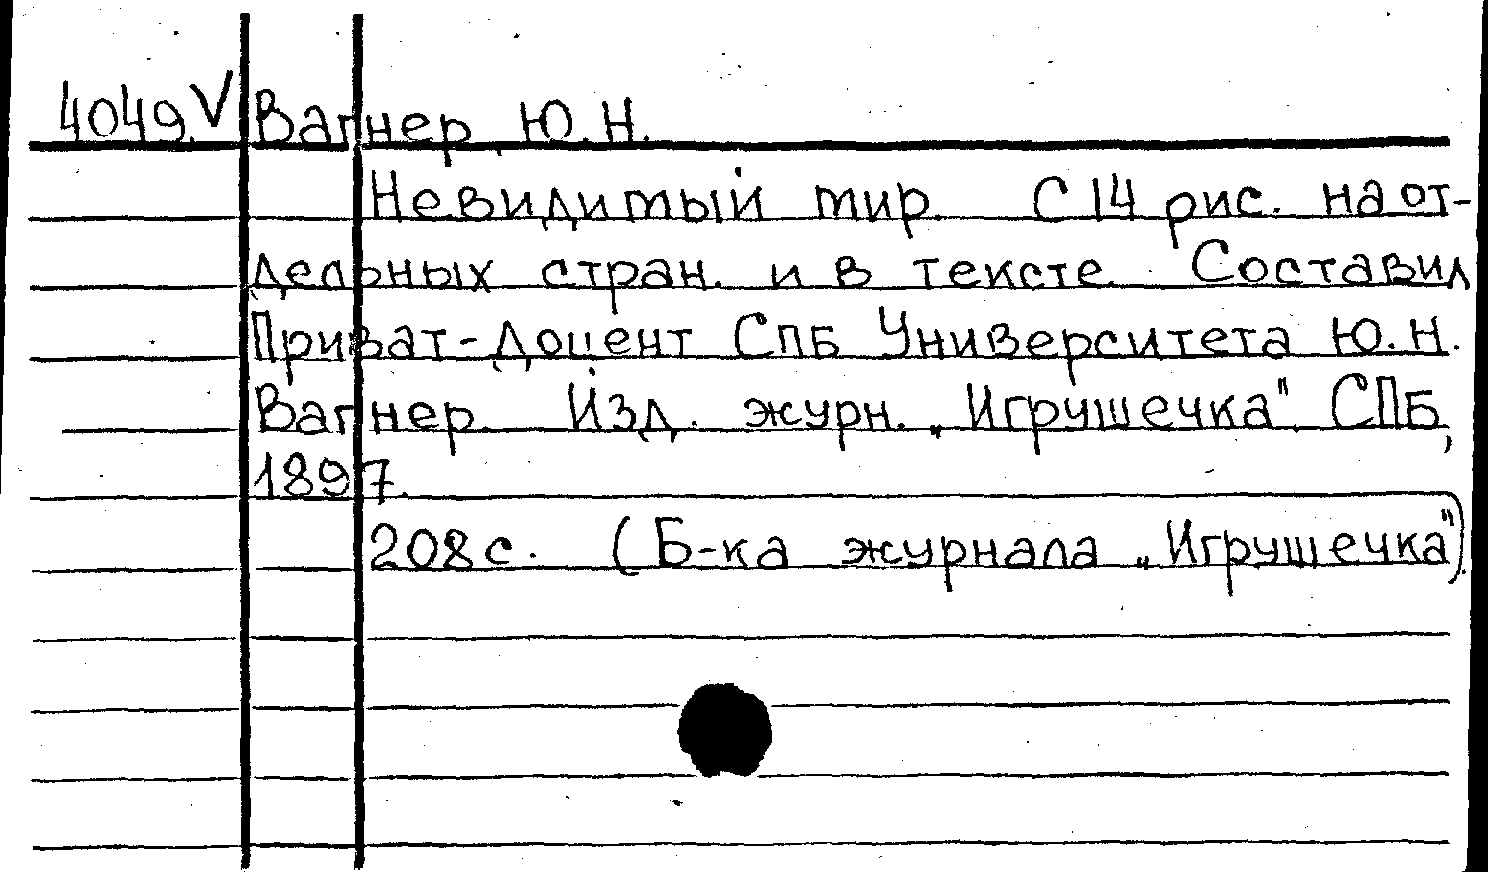 4049.V Вагнер, Ю.Н.
Невидимый мир. С 14 рис. на от-
дельных стран. и в тексте. Составил
Приват-Доцент СПБ Университета Ю.Н.
Вагнер. Изд. журн. „Игрушечка". СПБ,
1897.
208с. (Б-ка журнала „Игрушечка").